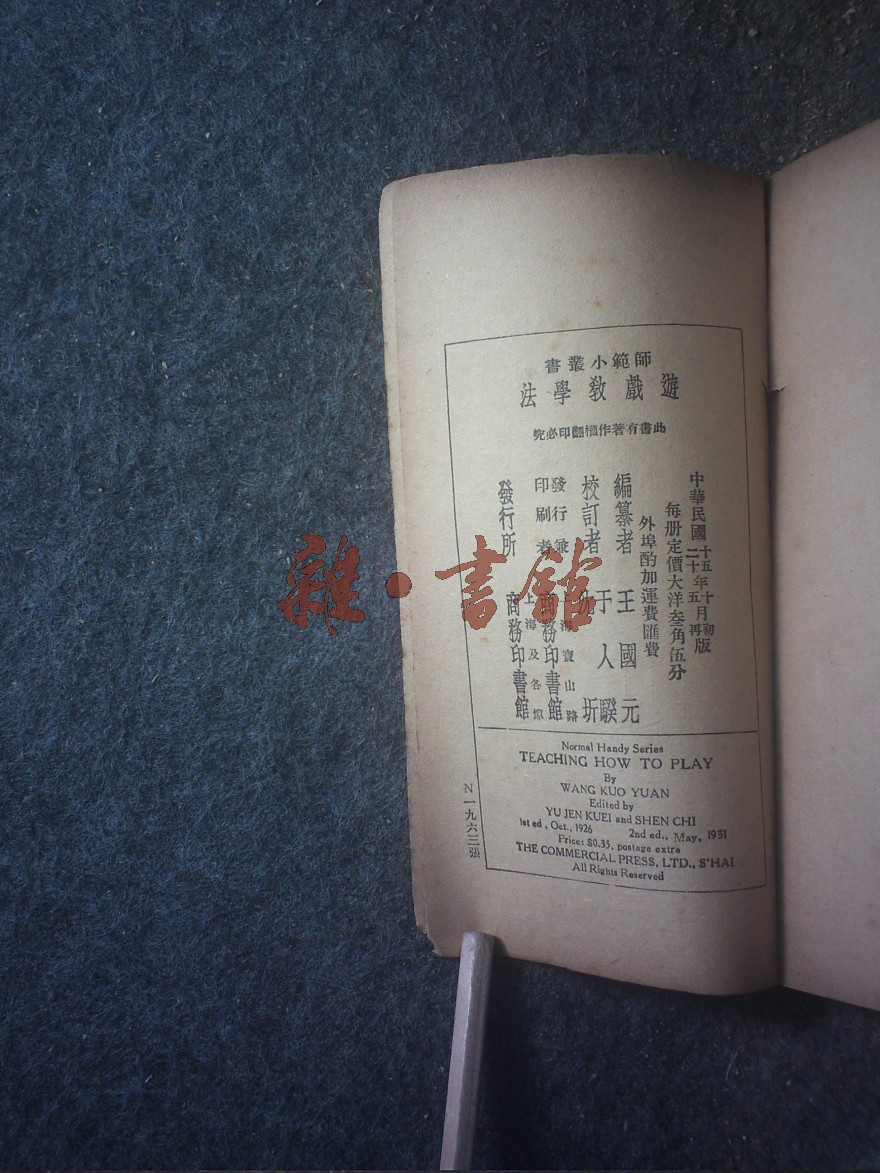 師範小叢書
遊戲教學法
此書有著作權翻印必究
中華民國十五年十月初版
二十年五月再版
每册定價大洋叁角伍分
外埠酌加運費匯費
編纂者 王國元
校訂者 于人騤 圻
發行兼印刷者 上海寶山路 商務印書館
發行所 上海及各埠 商務印書館
Normal Handy Series
TEACHING HOW TO PLAY
By
WANG KUO YUAN
Edited by
YU JEN KUEI and SHEN CHI
1st ed., Oct., 1926 2nd ed., May, 1931
Price: $0.35, postage extra
THE COMMERCIAL PRESS, LTD., S'HAI
All Rights Reserved
N一九六三張
雜·書館